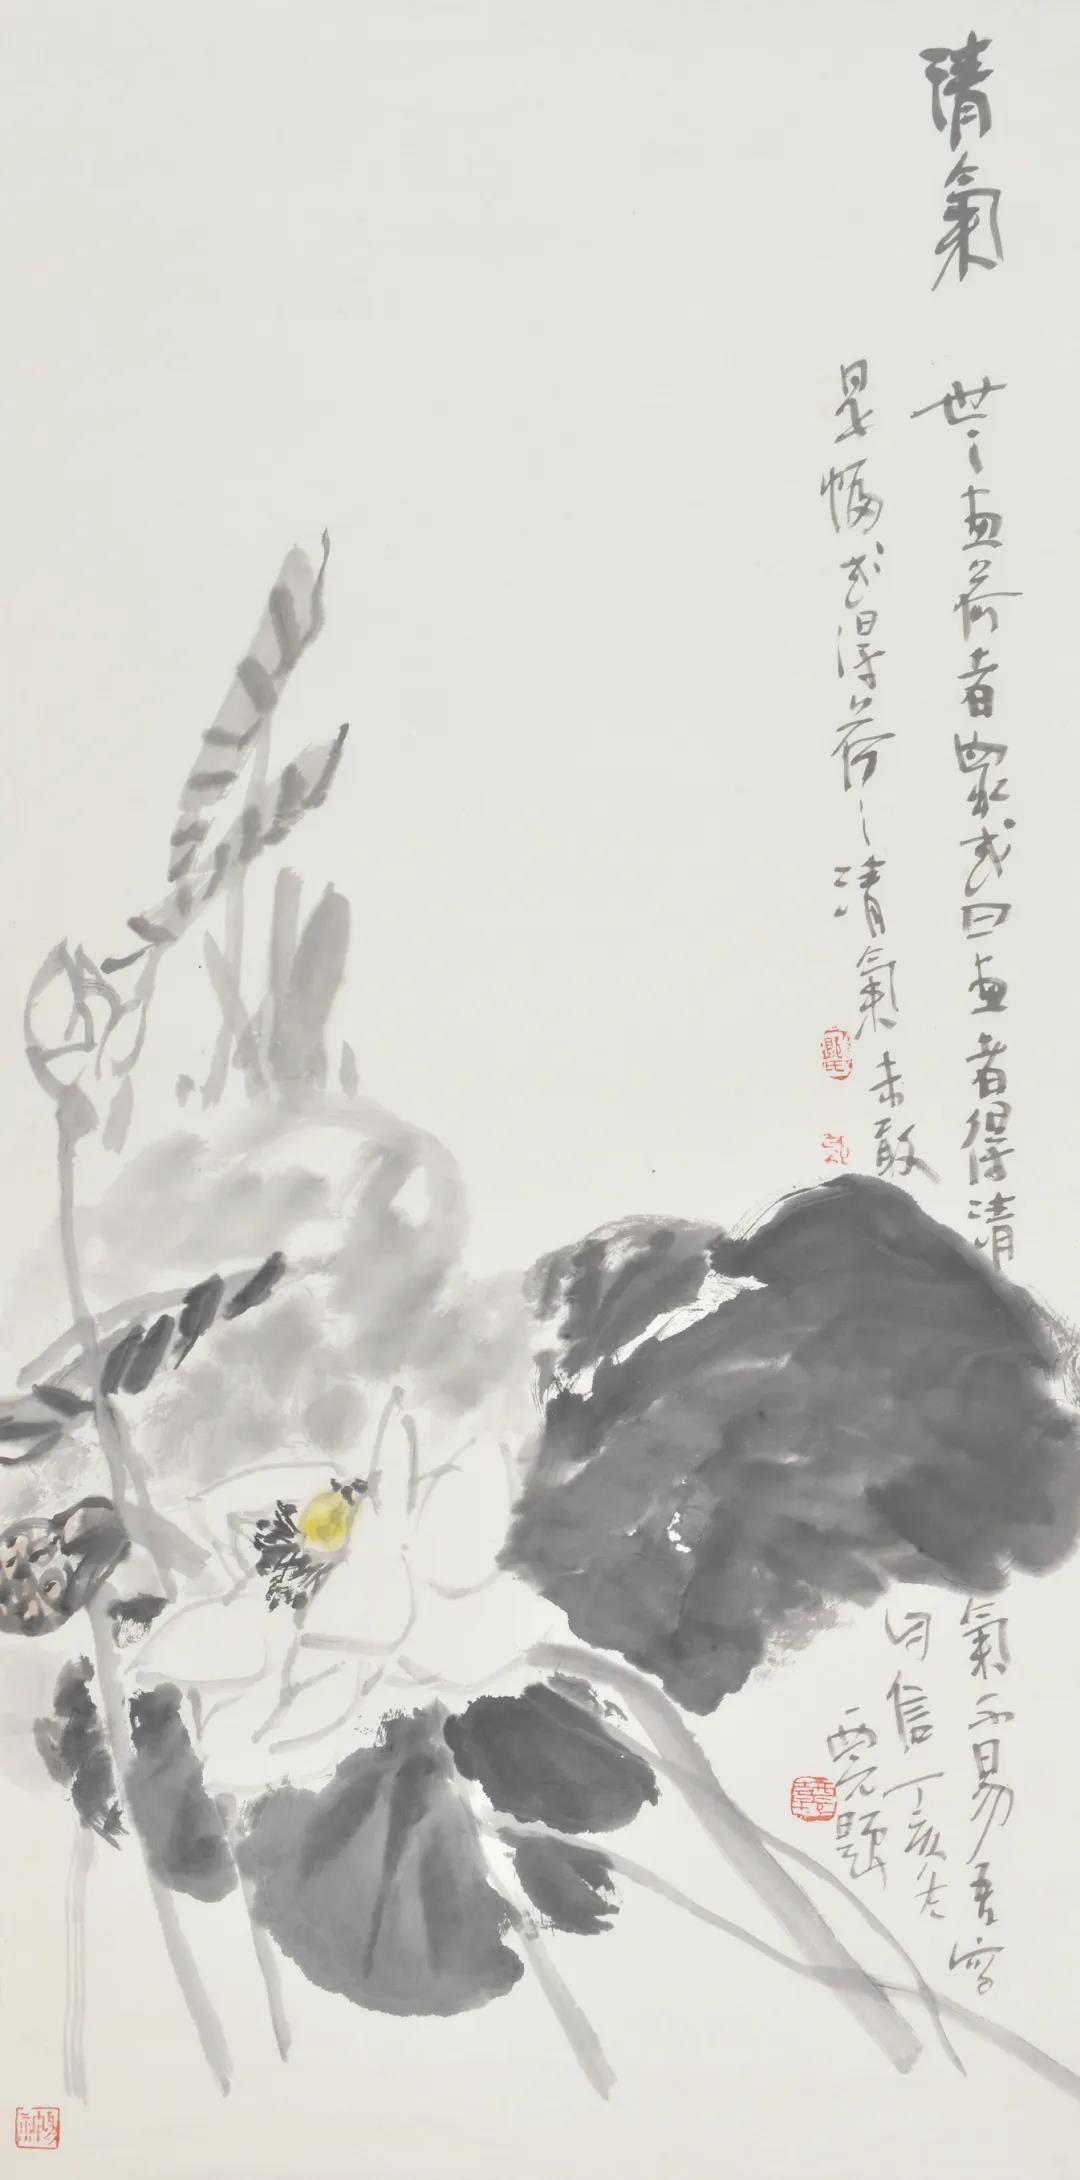 清氣
世之畫荷者眾或曰畫者得清氣不易吾寫
是幅或得荷之清氣未敢自信丁亥冬
題